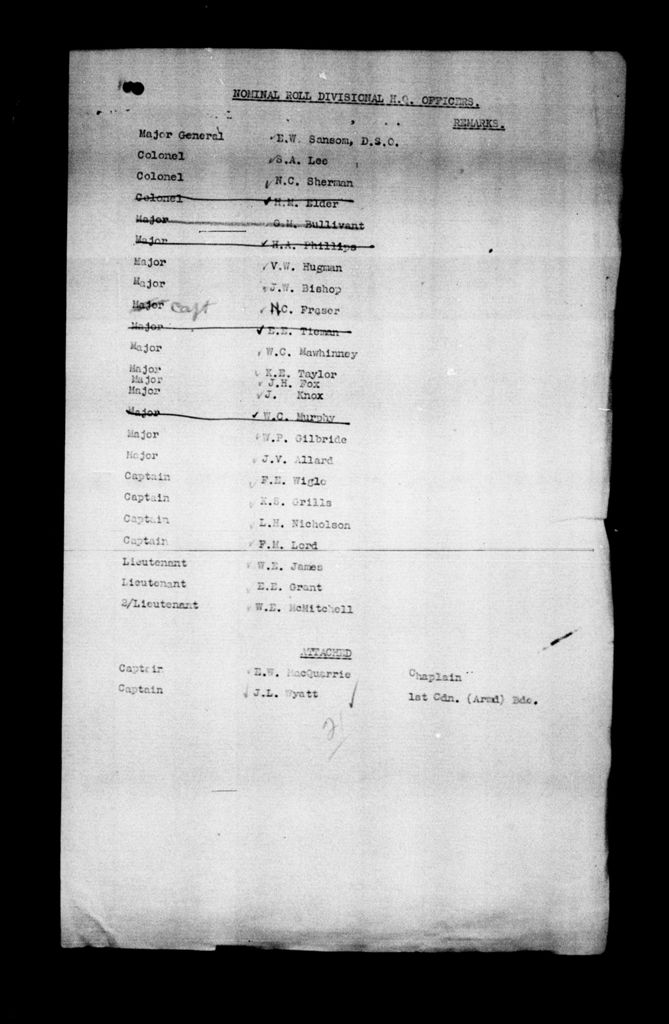 NOMINAL ROLL DIVISIONAL H.Q. OFFICERS.
REMARKS.
Major General E.W. Sansom, D.S.O.
Colonel S.A. Lee
Colonel N.C. Sherman
Colonel H.M. Elder
Major G.M. Bullivant
Major H.A. Phillips
Major V.W. Hugman
Major J.W. Bishop
Major Capt N.C. Fraser
Major E.E. Tieman
Major W.C. Mawhinney
Major K.E. Taylor
Major J.H. Fox
Major J. Knox
Major W.C. Murphy
Major W.P. Gilbride
Major J.V. Allard
Captain F.E. Wigle
Captain K.S. Grills
Captain L.H. Nicholson
Captain F.M. Lord
Lieutenant W.E. James
Lieutenant E.E. Grant
2/Lieutenant W.E. McMitchell
ATTACHED
Captain E.W. MacQuarrie Chaplain
Captain J.L. Wyatt 1st Cdn. (Armd) Bde.
21